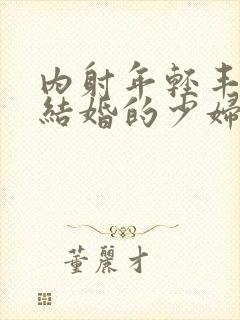 內射年輕丰
結婚的少婦
董麗才